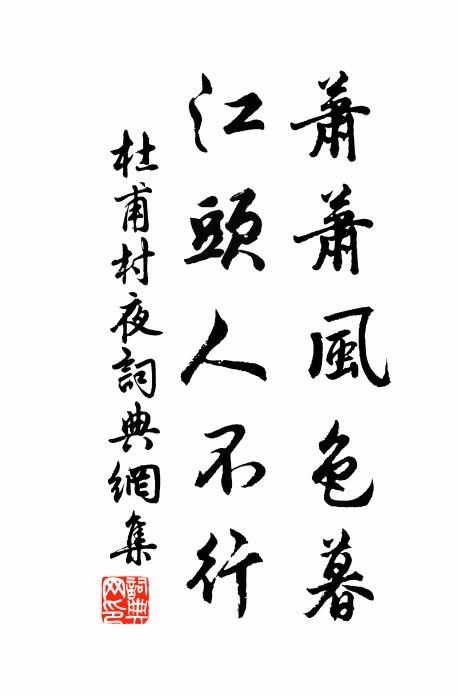 蕭蕭風色暮
江頭人不行
杜甫村夜詞典網集
詞典網印